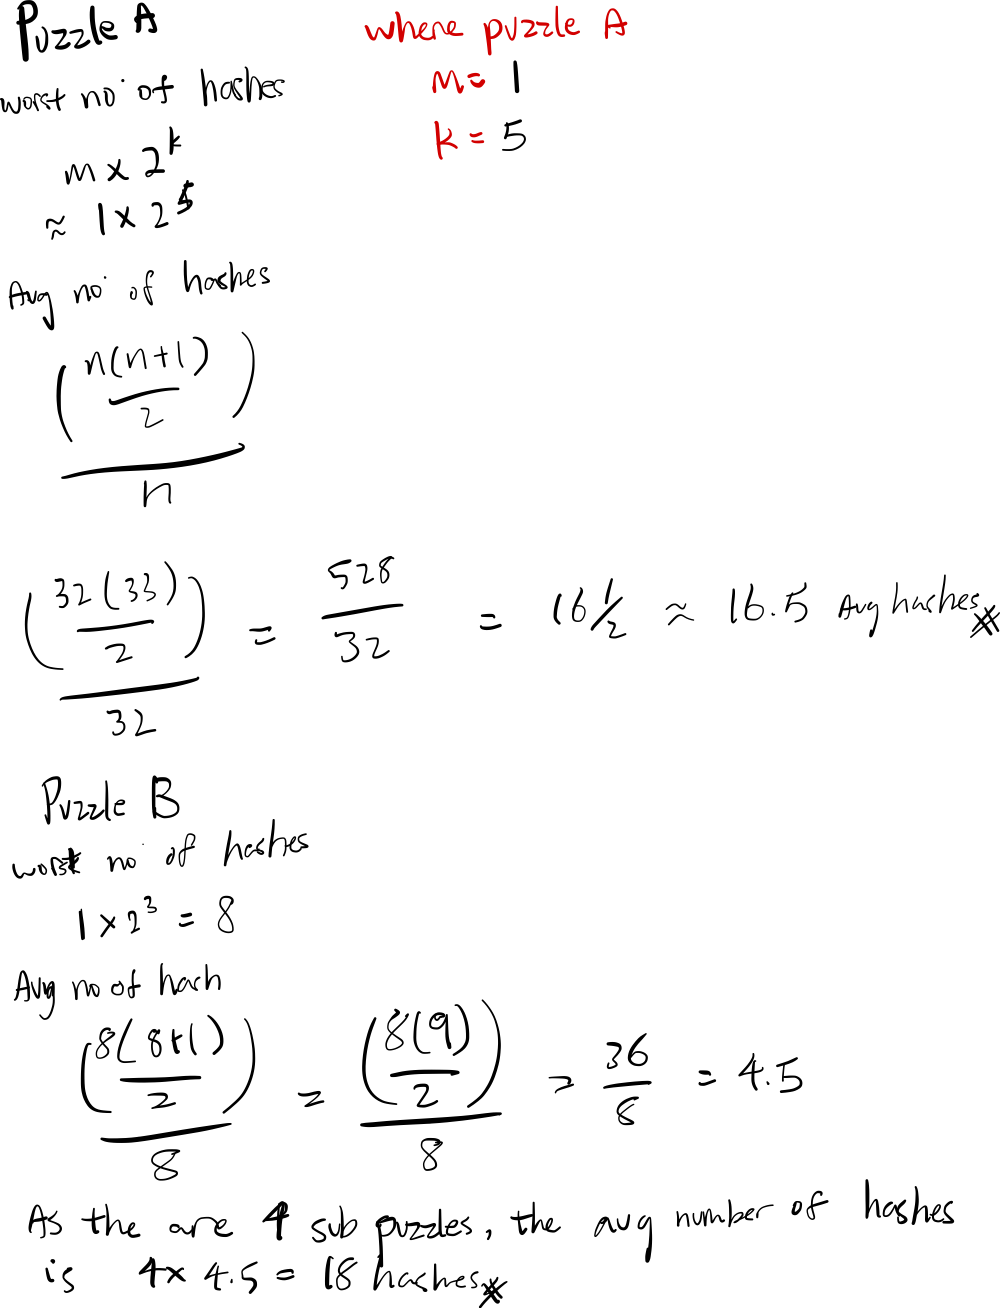 Puzzle A
where puzzle A
m = 1
k = 5
worst no. of hashes
m × 2^k
≈ 1 × 2^5
Avg no. of hashes
(n(n+1)/2) / n
(32(33)/2) / 32 = 528/32 = 16 1/2 ≈ 16.5 Avg hashes
Puzzle B
worst no. of hashes
1 × 2^3 = 8
Avg no of hash
(8(8+1)/2) / 8 = (8(9)/2) / 8 = 36/8 = 4.5
As the are 4 sub puzzles, the avg number of hashes
is 4 × 4.5 = 18 hashes